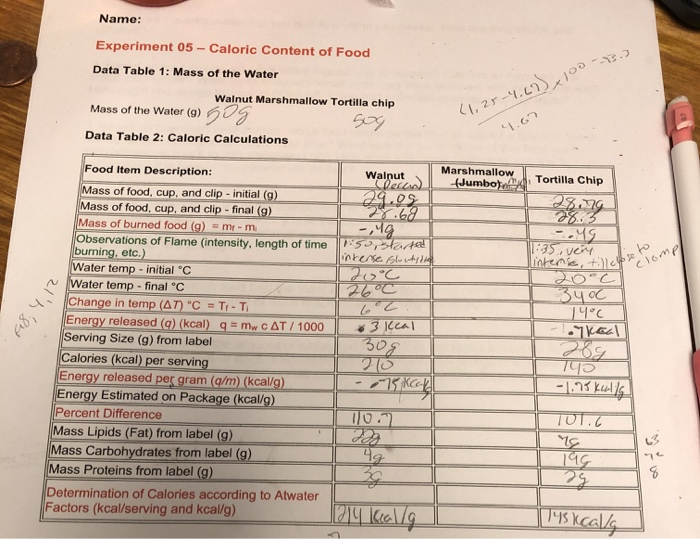 Name:
Experiment 05 – Caloric Content of Food
Data Table 1: Mass of the Water
Walnut Marshmallow Tortilla chip
Mass of the Water (g) 50g 50g
4.67
Data Table 2: Caloric Calculations
Food Item Description: Walnut (Pecan) Marshmallow (Jumbo) Tortilla Chip
Mass of food, cup, and clip - initial (g) 29.0g
Mass of food, cup, and clip - final (g) 28.6g 28.3
Mass of burned food (g) = mf - mi -.4g
Observations of Flame (intensity, length of time burning, etc.) 1:50, started intense 1:35, very intense, till close to clamp
Water temp - initial °C 20°C 20°C
Water temp - final °C 26°C 34°C
Change in temp (ΔT) °C = Tf - Ti 6°C 14°C
Energy released (q) (kcal) q = mw c ΔT / 1000 .3 kcal .7kcal
Serving Size (g) from label 30g 28g
Calories (kcal) per serving 210 140
Energy released per gram (q/m) (kcal/g) -.75 kcal/g -1.75 kcal/g
Energy Estimated on Package (kcal/g)
Percent Difference 110.7 101.6
Mass Lipids (Fat) from label (g) 22g 7g
Mass Carbohydrates from label (g) 4g 19g
Mass Proteins from label (g) 3g 2g
Determination of Calories according to Atwater Factors (kcal/serving and kcal/g) 214 kcal/g 145 kcal/g